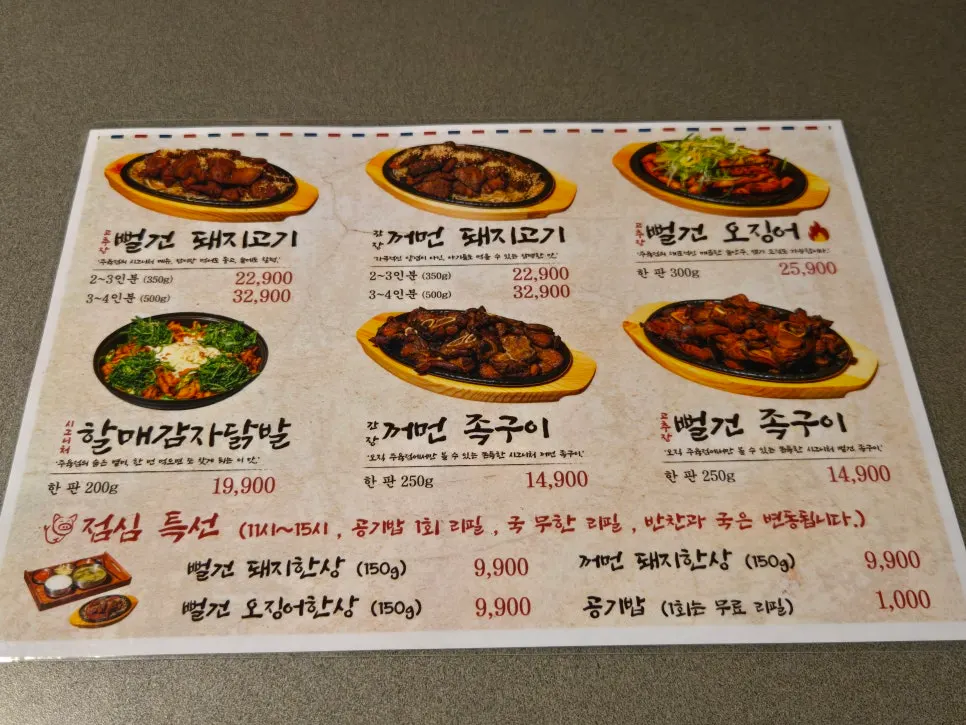 고추장 뻘건 돼지고기
2~3인분 (350g) 22,900
3~4인분 (500g) 32,900
간장 꺼먼 돼지고기
2~3인분 (350g) 22,900
3~4인분 (500g) 32,900
고추장 뻘건 오징어
한 판 300g 25,900
시그니처 할매감자닭발
한 판 200g 19,900
간장 꺼먼 족구이
한 판 250g 14,900
고추장 뻘건 족구이
한 판 250g 14,900
점심 특선 (11시~15시, 공기밥 1회 리필, 국 무한 리필, 반찬과 국은 변동됩니다.)
뻘건 돼지한상 (150g) 9,900
꺼먼 돼지한상 (150g) 9,900
뻘건 오징어한상 (150g) 9,900
공기밥 (1회는 무료 리필) 1,000